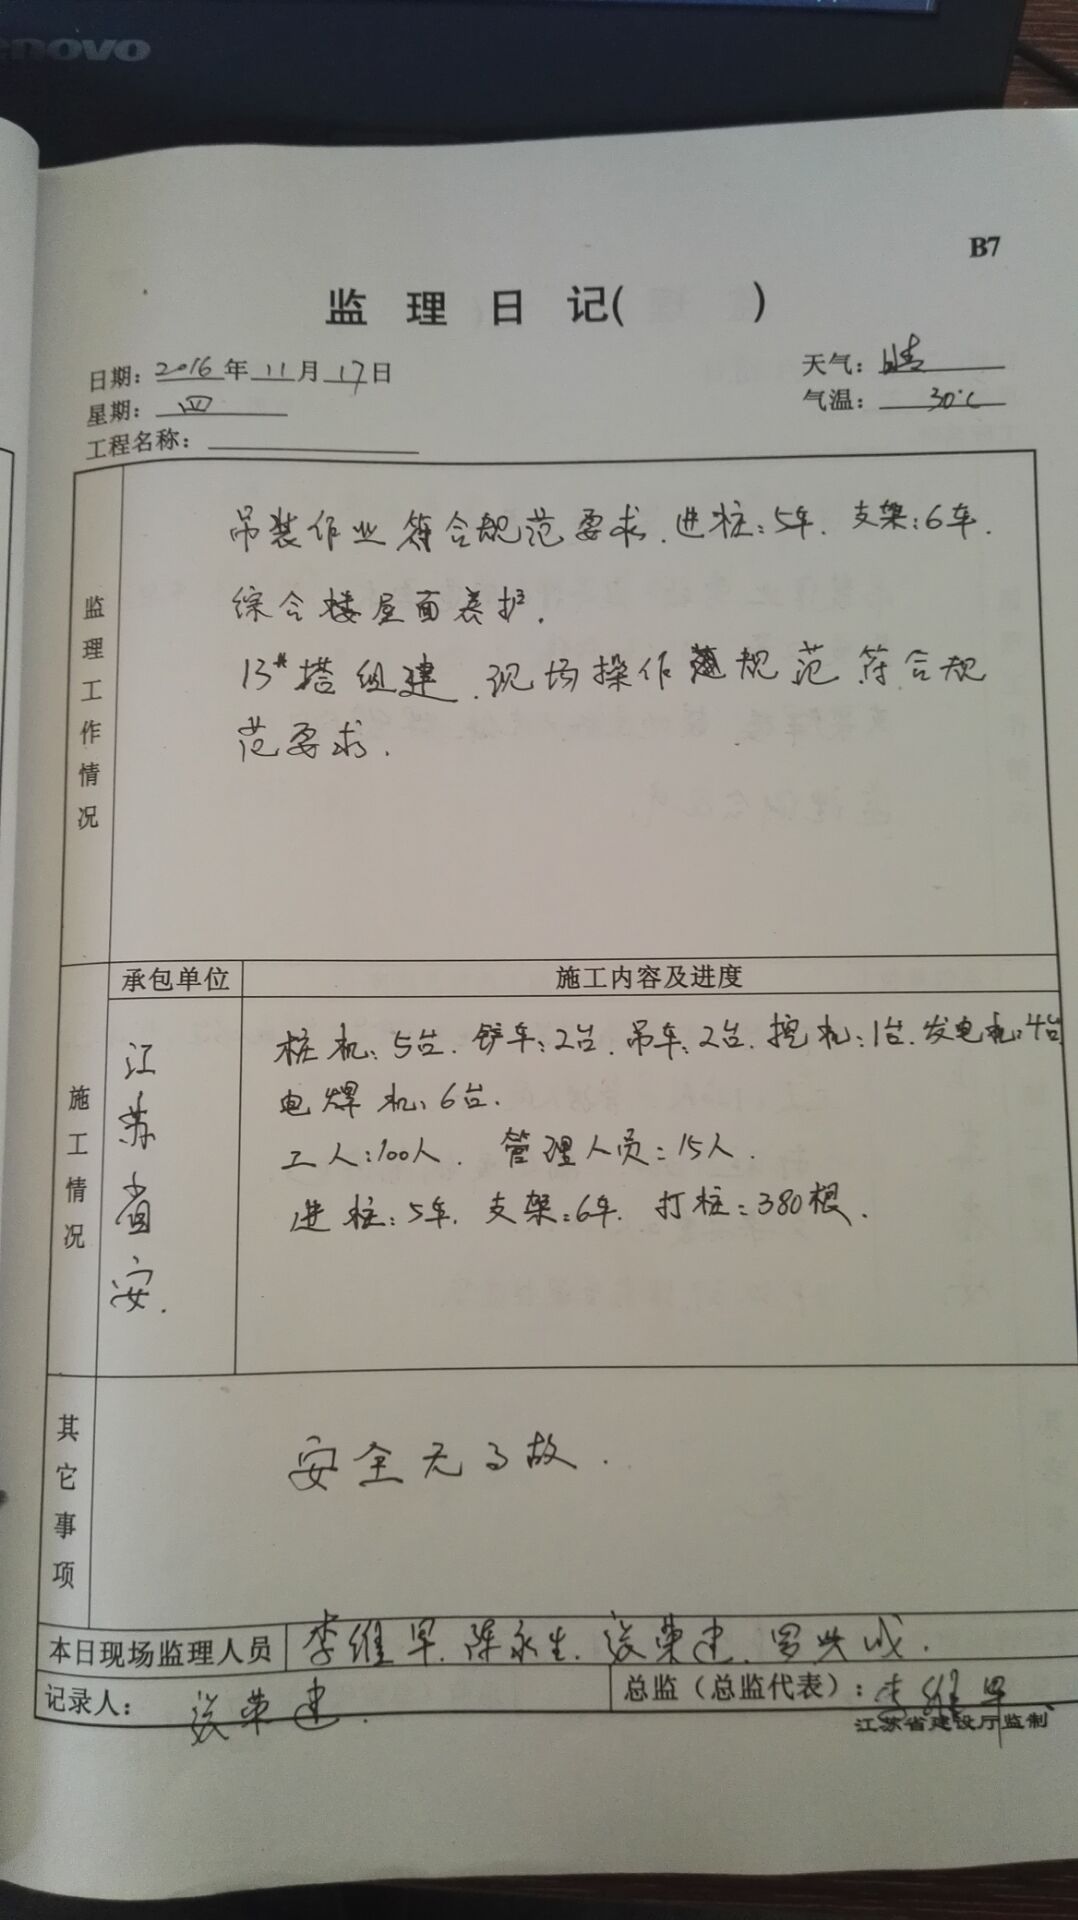 enovo
B7
监 理 日 记(        )
日期: 2016 年 11 月 17 日
天气: 晴
星期: 四
气温: 30℃
工程名称:
监理工作情况
吊装作业符合规范要求.进桩:5车. 支架:6车.
综合楼屋面养护.
13#搭组建.现场操作规范符合规
范要求.
承包单位
施工内容及进度
施工情况
江苏省安.
桩机:5台.铲车:2台.吊车:2台.挖机:1台.发电机:4台
电焊机:6台.
工人:100人. 管理人员:15人.
进桩:5车. 支架:6车. 打桩:380根.
其它事项
安全无事故.
本日现场监理人员 李维早.陈永生.张荣建.罗兴成.
记录人: 张荣建.
总监(总监代表): 李维早
江苏省建设厅监制